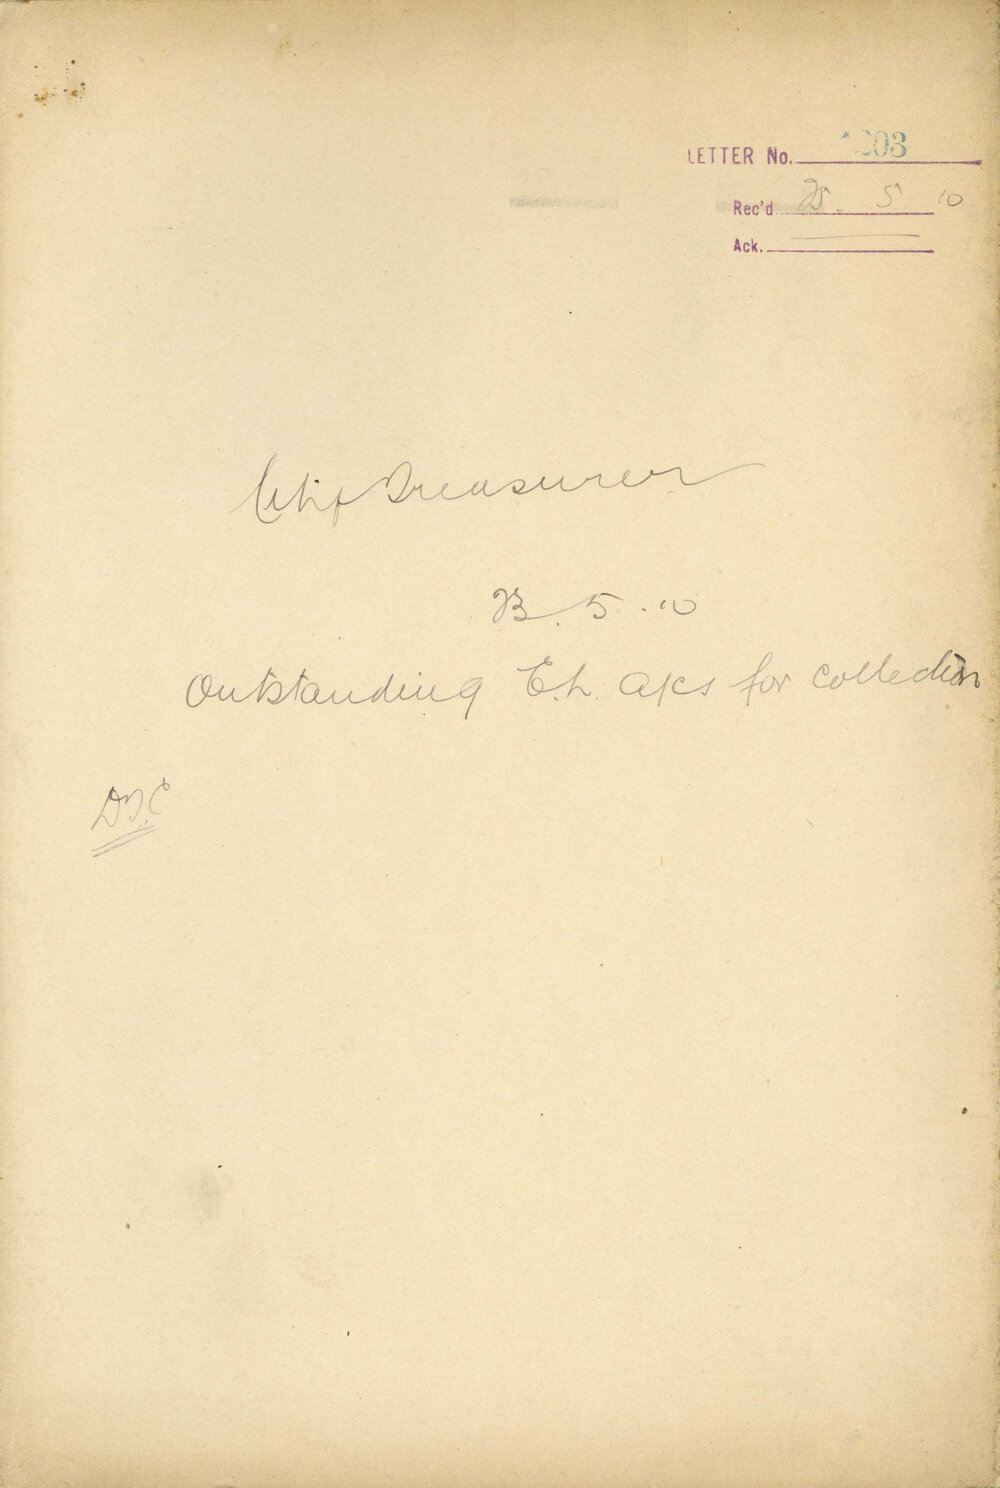 LETTER No. 1203
Rec'd 25. 5 10
Ack.
City Treasurer
23. 5. 10
Outstanding E.L. a/cs for collection